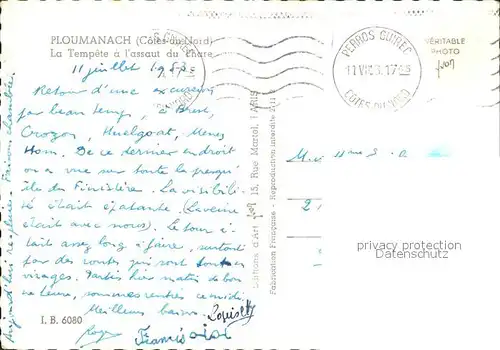 PLOUMANACH (Côtes-du-Nord)
La Tempête à l'assaut du Phare
11 juillet 1953
Retour d'une excursion
par beau temps, à Brest,
Crozon, Huelgoat, Menez
Hom. De ce dernier endroit
on a vue sur toute la presqu'
île du Finistère. La visibili-
té était épatante (la veine
était avec nous). Le tour é-
tait assez long à faire, surtout
par des routes qui sont toutes en
virages. Partis hier matin de bon-
ne heure, sommes rentrés ce midi.
Meilleurs baisers
Roger
Françoise
I. B. 6080
Aujourd'hui
Editions d'Art Yvon 15, Rue Martel, PARIS
Fabrication Française - Reproduction interdite
PERROS GUIREC
COTES DU NORD
VÉRITABLE
PHOTO
yvon
M. et
2
privacy protection
Datenschutz